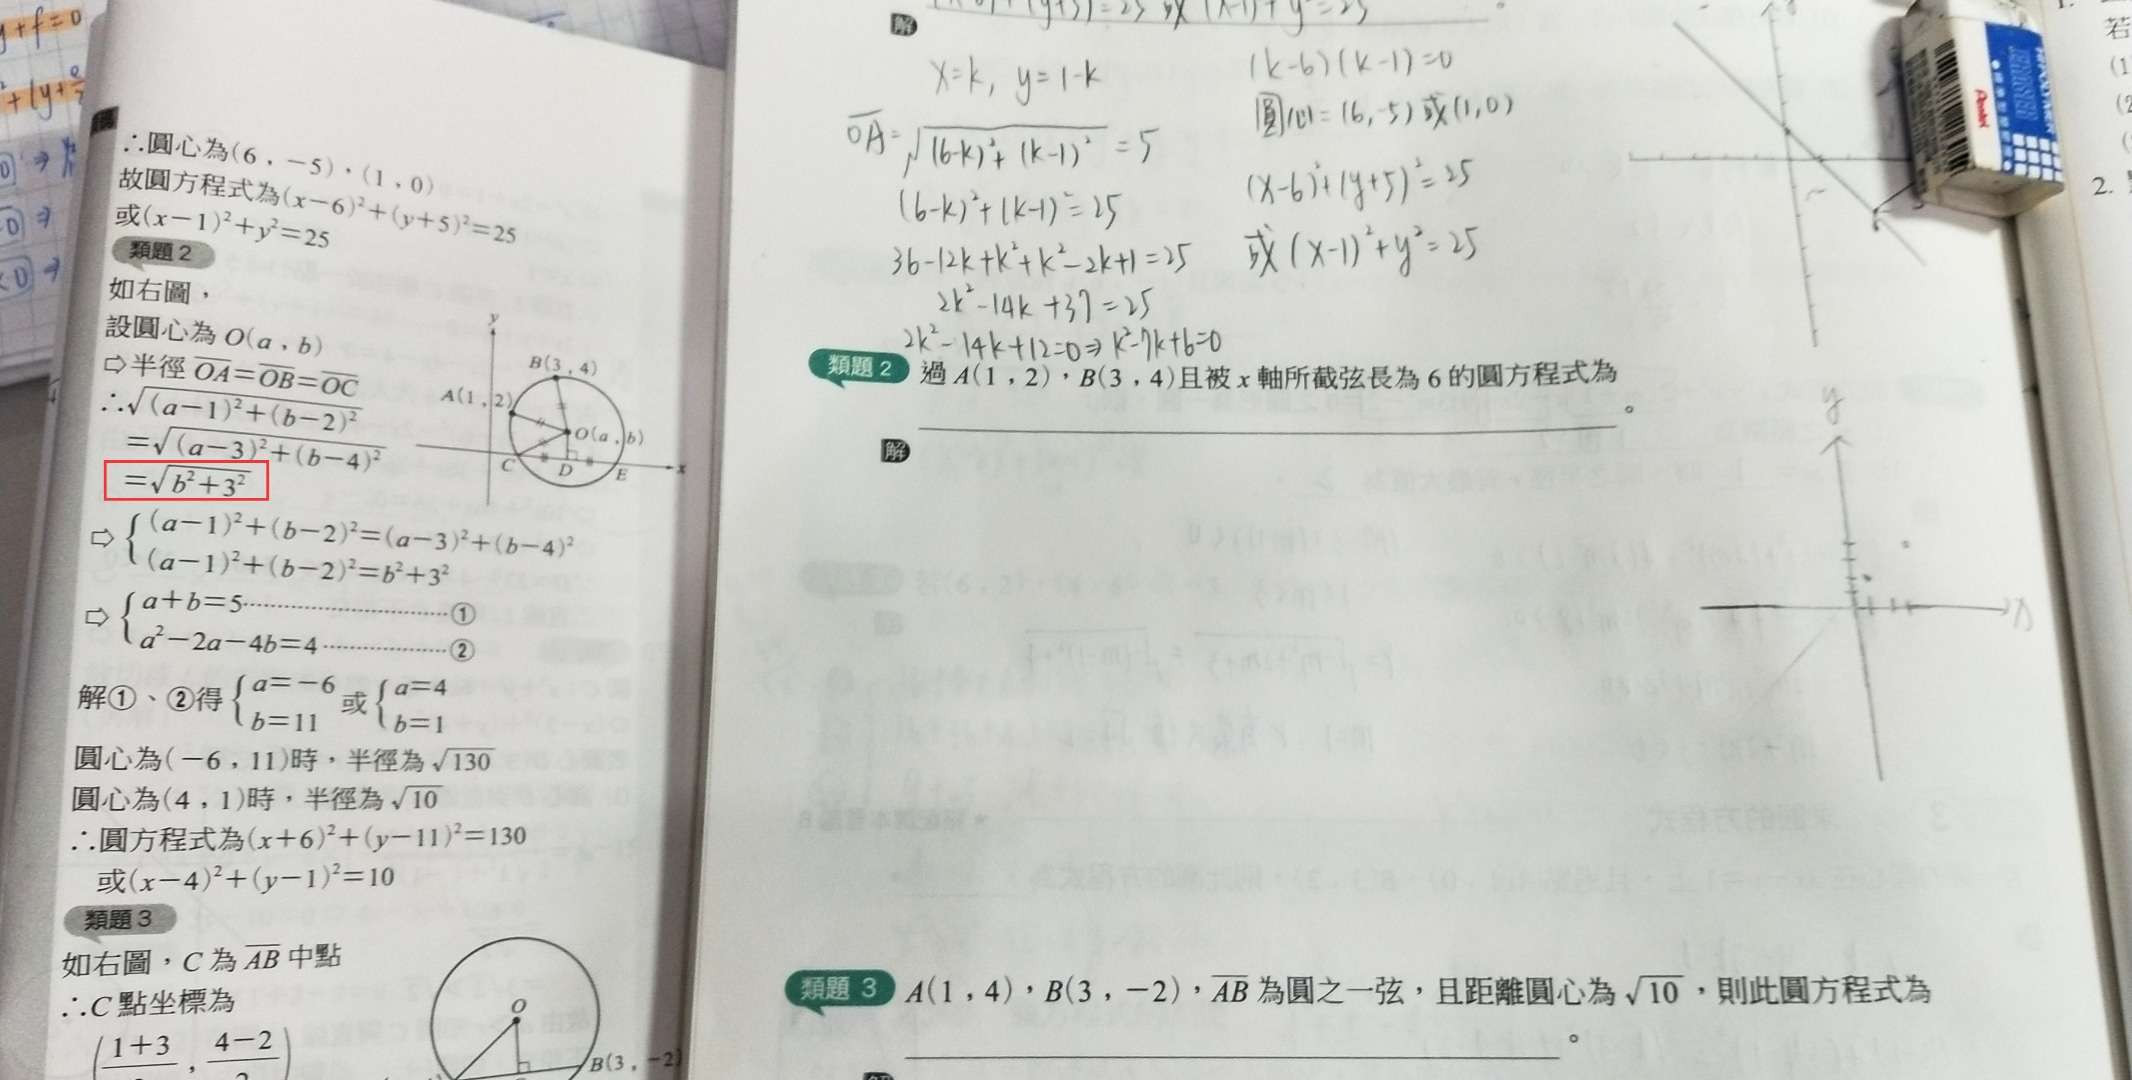 ∴圓心為(6,-5)、(1,0)
故圓方程式為(x-6)²+(y+5)²=25
或(x-1)²+y²=25
類題2
如右圖,
設圓心為 O(a,b)
⇨半徑 O̅A̅=O̅B̅=O̅C̅
∴√((a-1)²+(b-2)²)
=√((a-3)²+(b-4)²)
=√(b²+3²)
y
B(3,4)
A(1,2)
O(a,b)
C D E x
⇨{(a-1)²+(b-2)²=(a-3)²+(b-4)²
(a-1)²+(b-2)²=b²+3²
⇨{a+b=5……①
a²-2a-4b=4……②
解①、②得{a=-6 b=11 或{a=4 b=1
圓心為(-6,11)時,半徑為√130
圓心為(4,1)時,半徑為√10
∴圓方程式為(x+6)²+(y-11)²=130
或(x-4)²+(y-1)²=10
類題3
如右圖,C 為 A̅B̅ 中點
∴C 點坐標為
(1+3 , 4-2
O
B(3,-2)
解
x=k, y=1-k
O̅A̅=√((6-k)²+(k-1)²)=5
(6-k)²+(k-1)²=25
36-12k+k²+k²-2k+1=25
2k²-14k+37=25
2k²-14k+12=0⇒k²-7k+6=0
(k-6)(k-1)=0
圓心=(6,-5)或(1,0)
(x-6)²+(y+5)²=25
或(x-1)²+y²=25
類題2 過 A(1,2),B(3,4)且被 x 軸所截弦長為 6 的圓方程式為
。
解
y
x
類題3 A(1,4),B(3,-2),A̅B̅ 為圓之一弦,且距離圓心為√10,則此圓方程式為
。
Pentel
若
2.